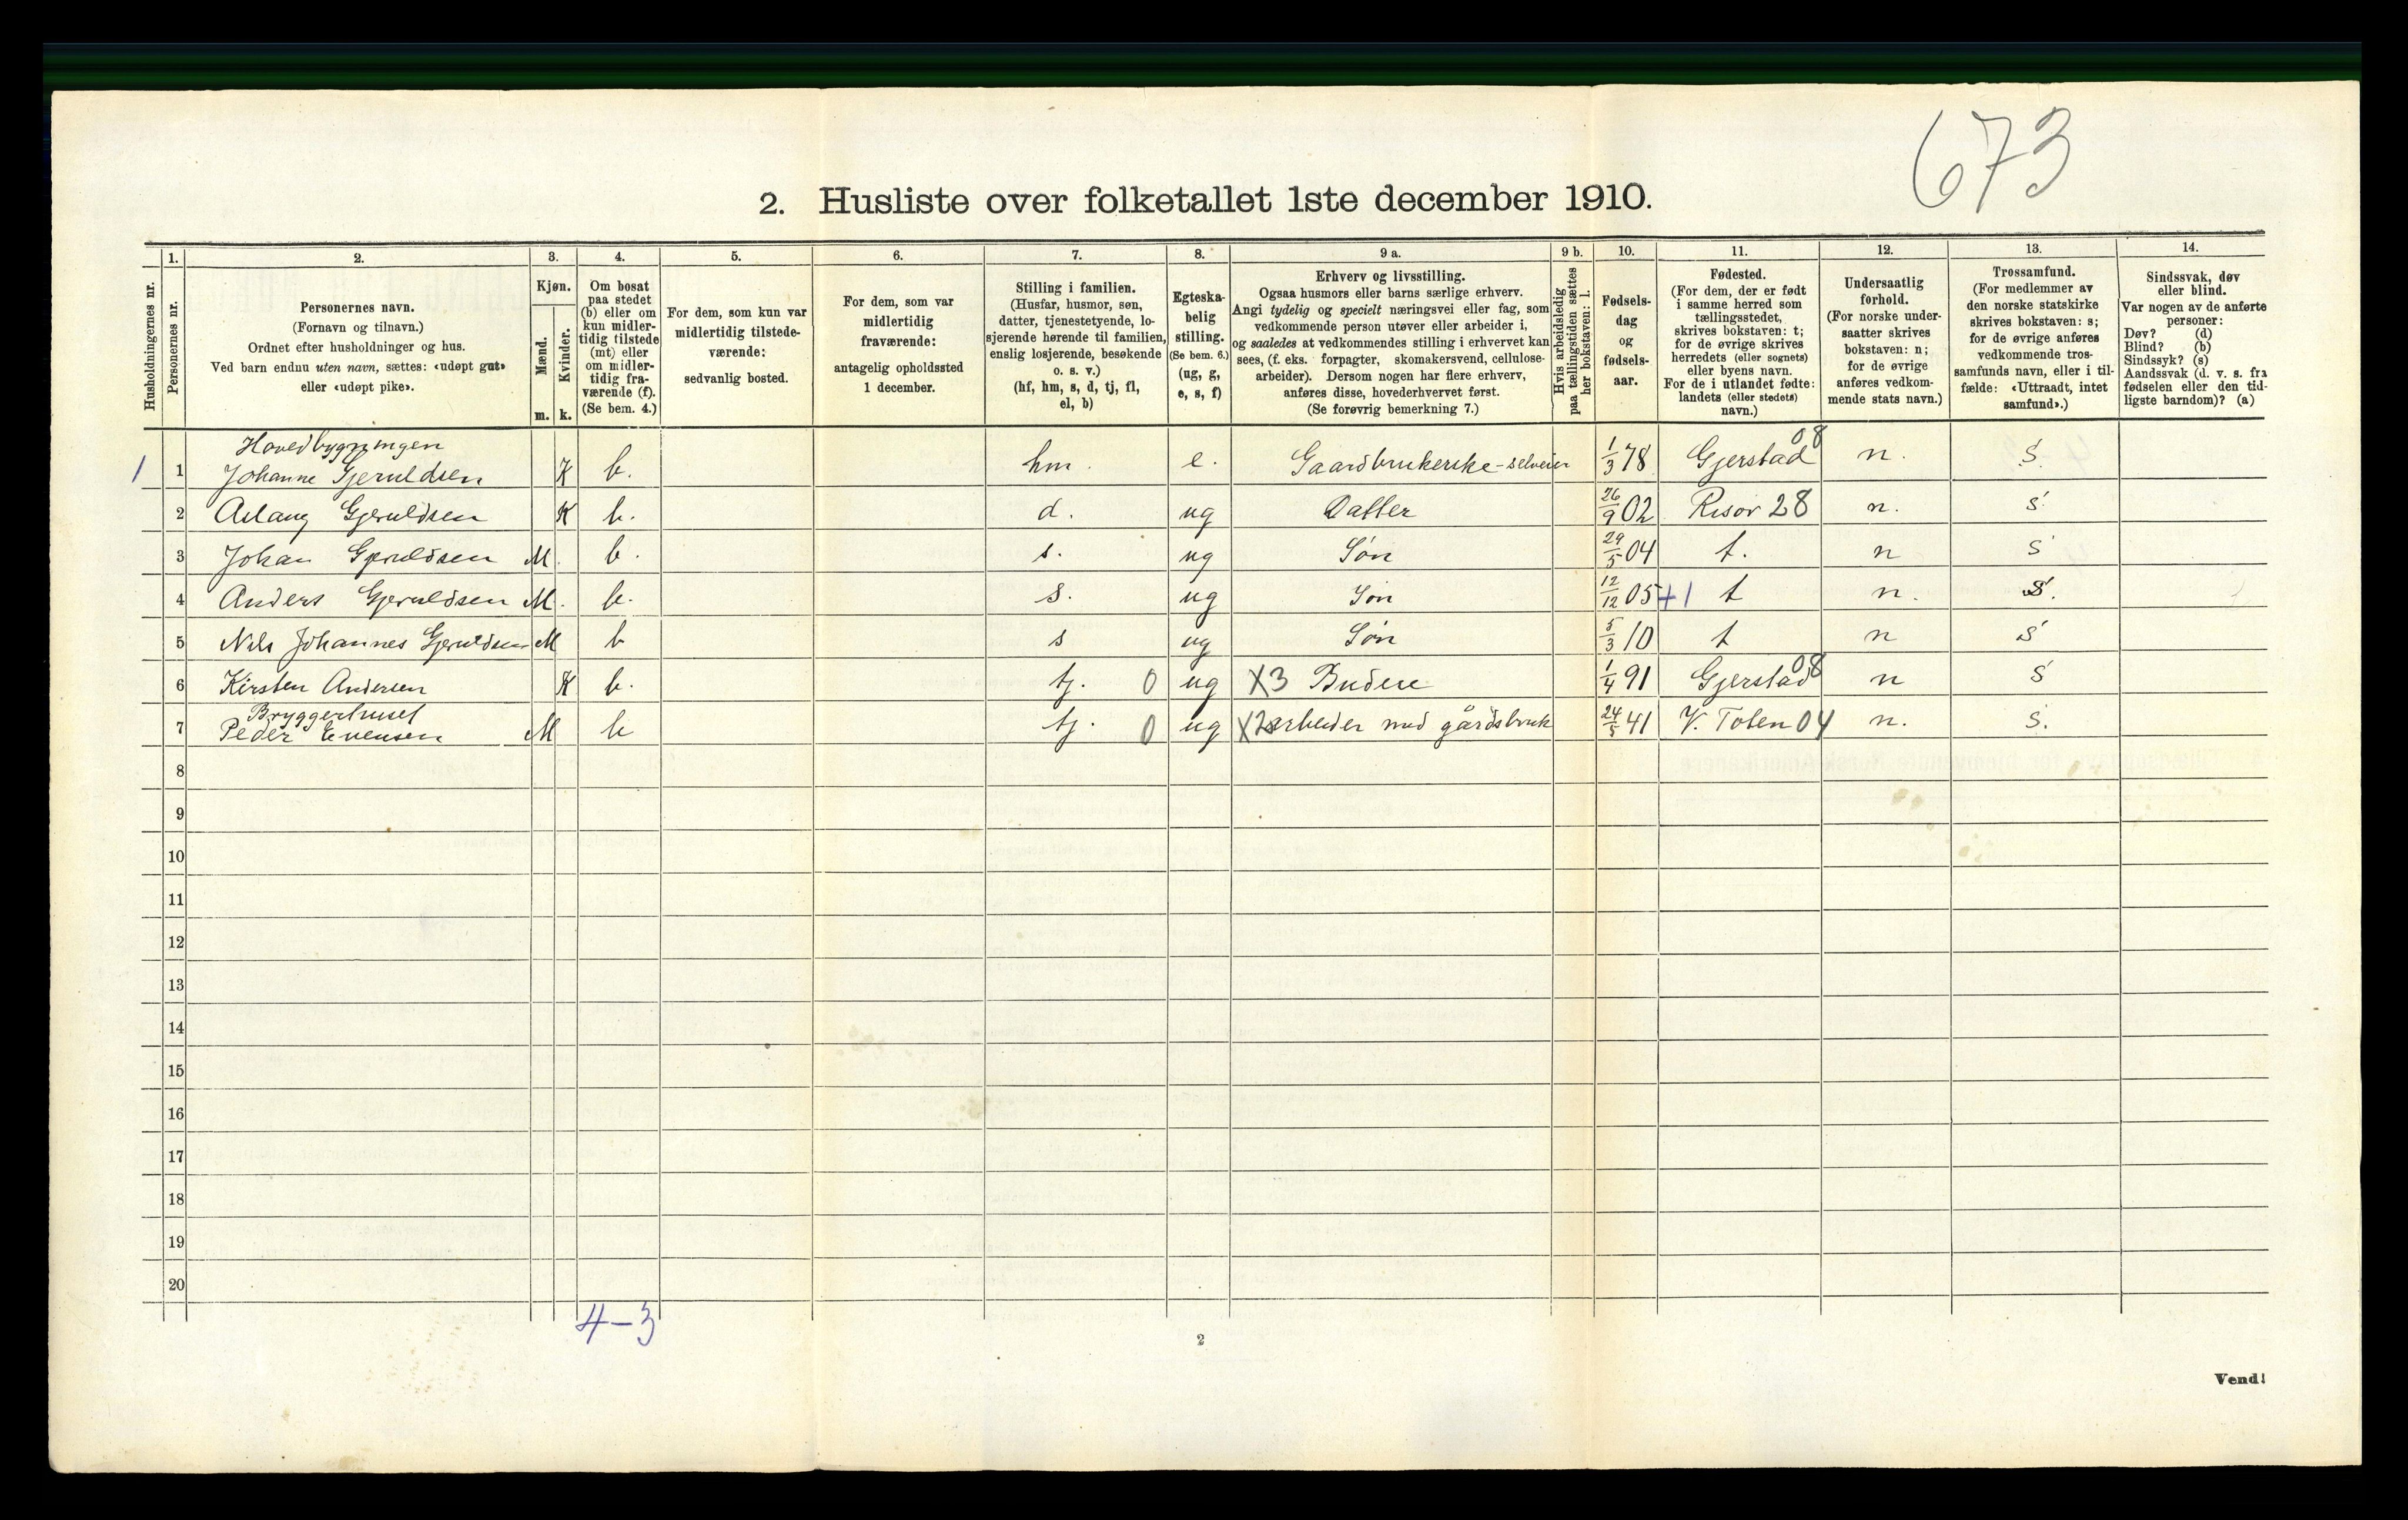 673
2. Husliste over folketallet 1ste december 1910.
Husholdningernes nr.
1. Personernes nr.
2. Personernes navn.
(Fornavn og tilnavn.)
Ordnet efter husholdninger og hus.
Ved barn endnu uten navn, sættes: «udøpt gut»
eller «udøpt pike».
3. Kjøn.
Mænd. m.
Kvinder. k.
4. Om bosat
paa stedet
(b) eller om
kun midler-
tidig tilstede
(mt) eller
om midler-
tidig fra-
værende (f).
(Se bem. 4.)
5. For dem, som kun var
midlertidig tilstede-
værende:
sedvanlig bosted.
6. For dem, som var
midlertidig
fraværende:
antagelig opholdssted
1 december.
7. Stilling i familien.
(Husfar, husmor, søn,
datter, tjenestetyende, lo-
sjerende hørende til familien,
enslig losjerende, besøkende
o. s. v.)
(hf, hm, s, d, tj, fl,
el, b)
8. Egteska-
belig
stilling.
(Se bem. 6.)
(ug, g,
e, s, f)
9 a. Erhverv og livsstilling.
Ogsaa husmors eller barns særlige erhverv.
Angi tydelig og specielt næringsvei eller fag, som
vedkommende person utøver eller arbeider i,
og saaledes at vedkommendes stilling i erhvervet kan
sees, (f. eks. forpagter, skomakersvend, cellulose-
arbeider). Dersom nogen har flere erhverv,
anføres disse, hovederhvervet først.
(Se forøvrig bemerkning 7.)
9 b. Hvis arbeidsledig
paa tællingstiden sættes
her bokstaven: l.
10. Fødsels-
dag
og
fødsels-
aar.
11. Fødested.
(For dem, der er født
i samme herred som
tællingsstedet,
skrives bokstaven: t;
for de øvrige skrives
herredets (eller sognets)
eller byens navn.
For de i utlandet fødte:
landets (eller stedets)
navn.)
12. Undersaatlig
forhold.
(For norske under-
saatter skrives
bokstaven: n;
for de øvrige
anføres vedkom-
mende stats navn.)
13. Trossamfund.
(For medlemmer av
den norske statskirke
skrives bokstaven: s;
for de øvrige anføres
vedkommende tros-
samfunds navn, eller i til-
fælde: «Uttraadt, intet
samfund».)
14. Sindssvak, døv
eller blind.
Var nogen av de anførte
personer:
Døv? (d)
Blind? (b)
Sindssyk? (s)
Aandssvak (d. v. s. fra
fødselen eller den tid-
ligste barndom)? (a)
Hovedbygningen
1 1 Johanne Gjeruldsen K b. hm. e. Gaardbrukerske-selveier 1/3 78 Gjerstad 08 n. S.
2 Aslaug Gjeruldsen K b. d. ug Datter 26/9 02 Risør 28 n. S
3 Johan Gjeruldsen M. b. s. ug Søn 29/5 04 t. n S
4 Anders Gjeruldsen M. b. s. ug Søn 12/12 05 +1 t n. S.
5 Nils Johannes Gjeruldsen M b s ug Søn 5/3 10 t n S
6 Kirsten Andersen K b. tj. 0 ug X3 Budeie 1/4 91 Gjerstad 08 n S
Bryggerhuset
7 Peder Evensen M b tj. 0 ug X2 arbeider med gårdsbruk 24/5 41 V. Toten 04 n. S.
8
9
10
11
12
13
14
15
16
17
18
19
20
4-3
2
Vend!